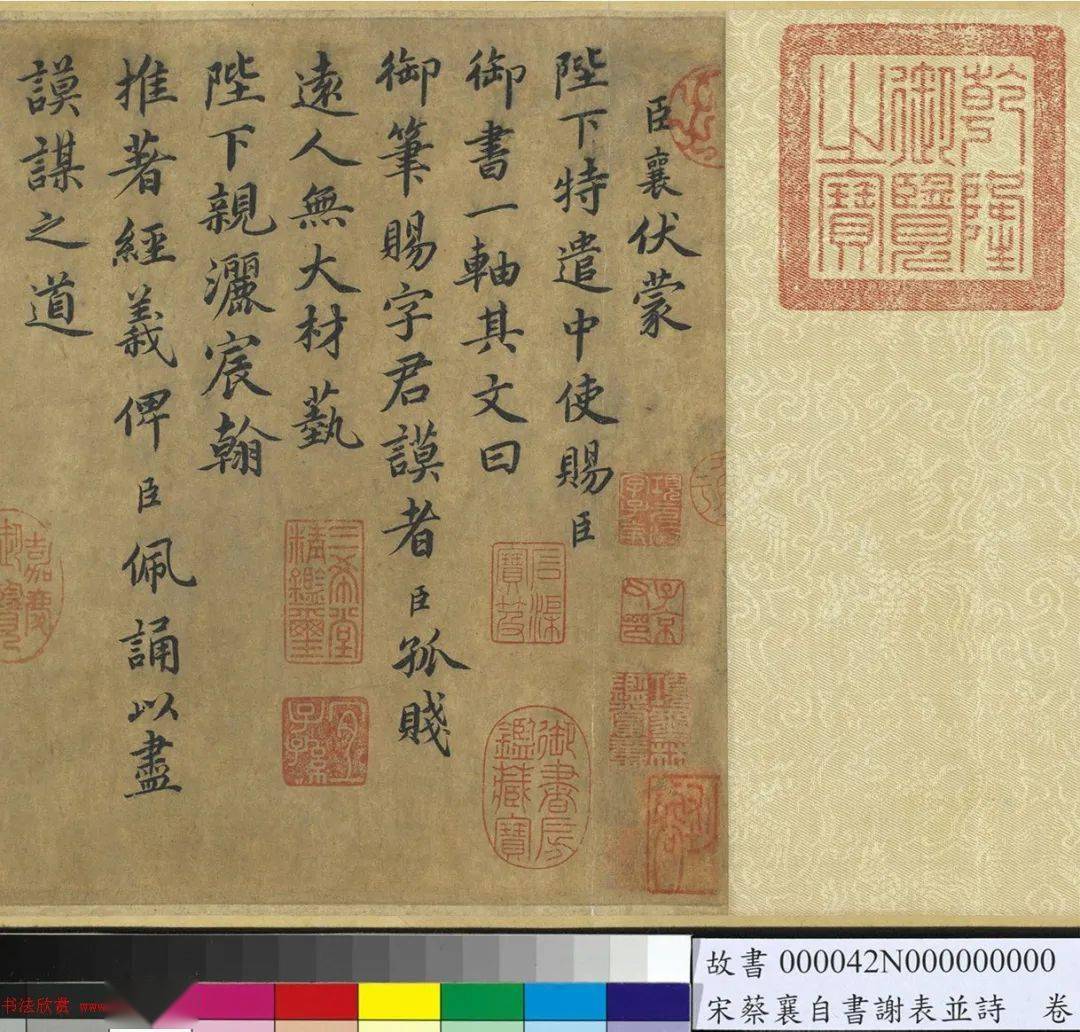 乾隆
御覽
之寶
臣襄伏蒙
陛下特遣中使賜臣
御書一軸其文曰
御筆賜字君謨者臣孤賤
遠人無大材藝
陛下親灑宸翰
推著經義俾臣佩誦以盡
謨謀之道
子京
御書房
鑑藏寶
三希堂
精鑑璽
宜
子孫
嘉慶
御覽
故書 000042N000000000
宋蔡襄自書謝表並詩 卷
书法欣赏 www.